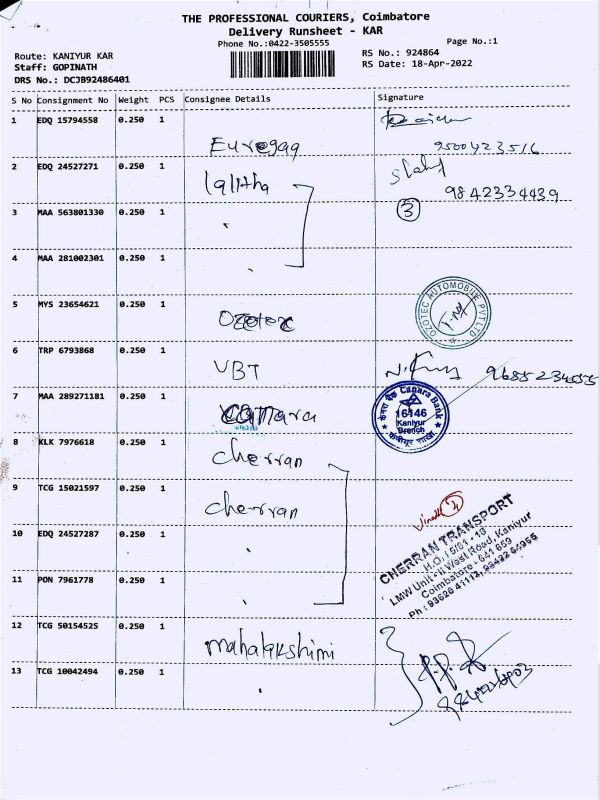 THE PROFESSIONAL COURIERS, Coimbatore
Delivery Runsheet - KAR
Phone No.:0422-3505555
Page No.:1
Route: KANIYUR KAR
RS No.: 924864
Staff: GOPINATH
RS Date: 18-Apr-2022
DRS No.: DCJB92486401
S No Consignment No Weight PCS Consignee Details Signature
1 EDQ 15794558 0.250 1
Euregaq 9500423516
2 EDQ 24527271 0.250 1
lalitha 9842334439
3 MAA 563801330 0.250 1 3
4 MAA 281002301 0.250 1
5 MYS 23654621 0.250 1
Ozotec
OZOTEC AUTOMOBILE PVT LTD
6 TRP 6793868 0.250 1
VBT 9685234055
7 MAA 289271181 0.250 1
canara
केनरा बैंक Canara Bank
16146
Kaniyur
Branch
8 KLK 7976618 0.250 1
cherran
9 TCG 15021597 0.250 1
cherran
10 EDQ 24527287 0.250 1
CHERRAN TRANSPORT
H.O.
LMW Unit-II West Road, Kaniyur
Coimbatore - 641 659
11 PON 7961778 0.250 1
12 TCG 50154525 0.250 1
mahalakshimi
13 TCG 10042494 0.250 1